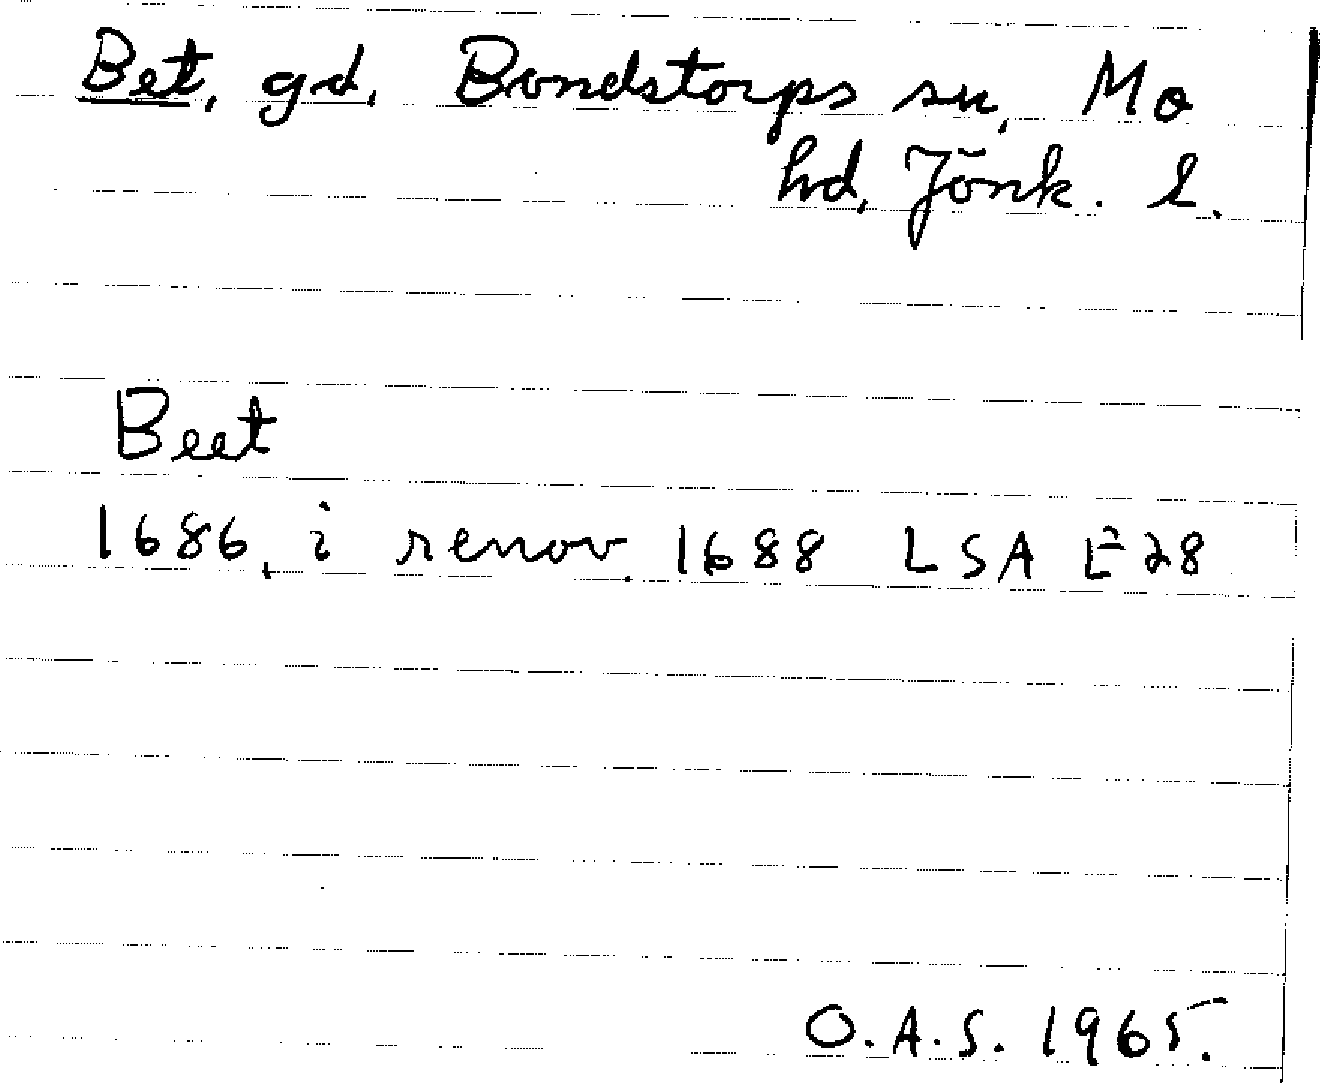 Bet, gd, Bondstorps sn, Mo
hd, Jönk. l.
Beet
1686, i renov. 1688 LSA E28
O.A.S. 1965.